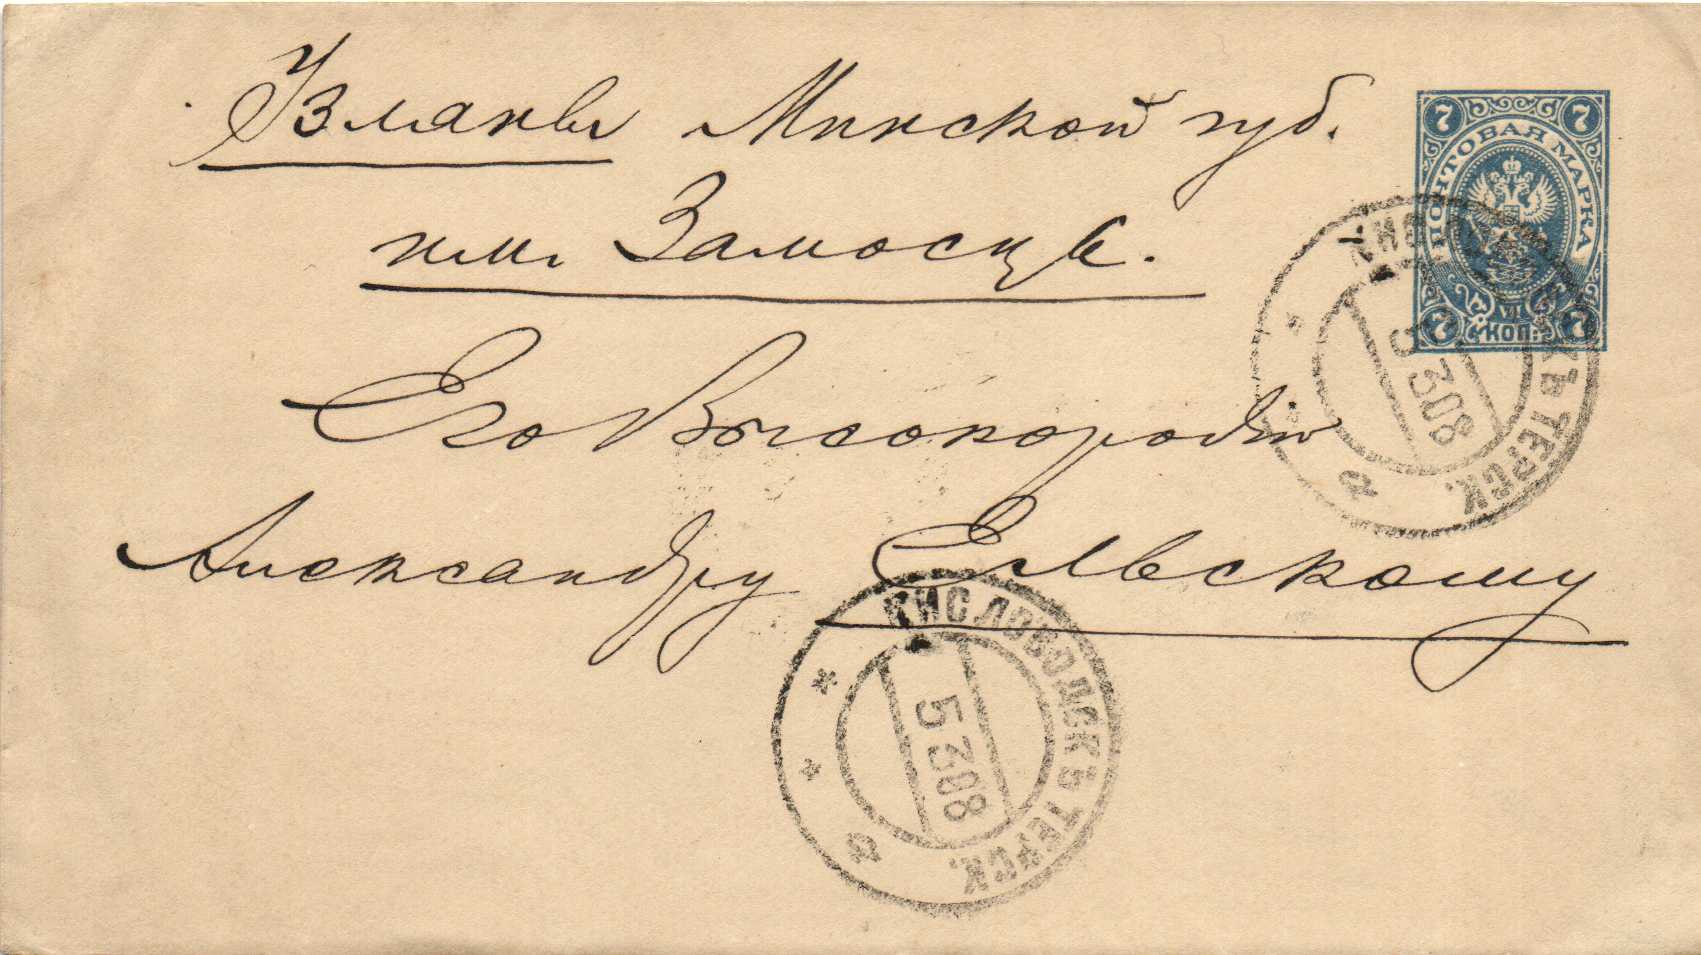 Узляны Минской губ.
им. Замосце.
Его Высокородію
Александру Ельскому
7 7
ПОЧТОВАЯ МАРКА
7 КОП. 7
КИСЛОВОДСКЪ ТЕРСК.
5 3 08
а
КИСЛОВОДСКЪ ТЕРСК.
5 3 08
а